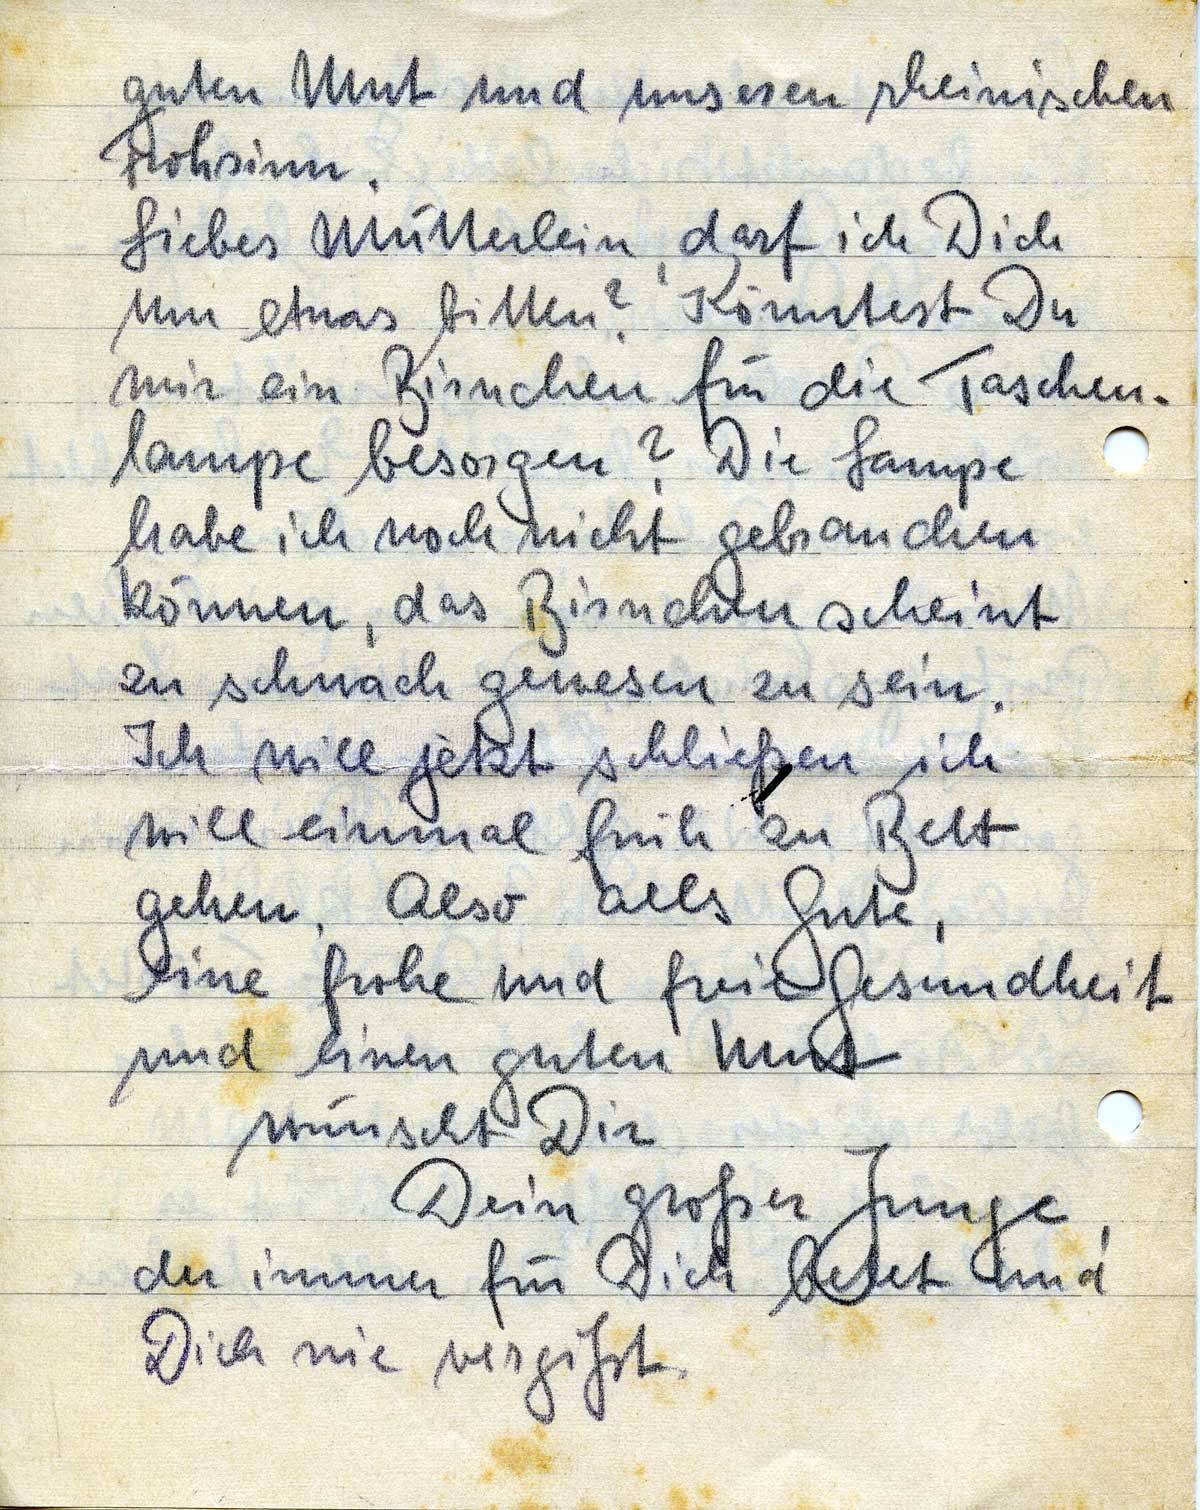 guten Mut und unseren rheinischen
Frohsinn.
Liebes Mütterlein, darf ich Dich
um etwas bitten? Könntest Du
mir ein Birnchen für die Taschen-
lampe besorgen? Die Lampe
habe ich noch nicht gebrauchen
können, das Birnchen scheint
zu schwach gewesen zu sein.
Ich will jetzt schließen ich
will einmal früh zu Bett
gehen. Also alls Gute,
eine frohe und freie Gesundheit
und einen guten Mut
wünscht Dir
Dein großer Junge,
der immer für Dich betet und
Dich nie vergißt.